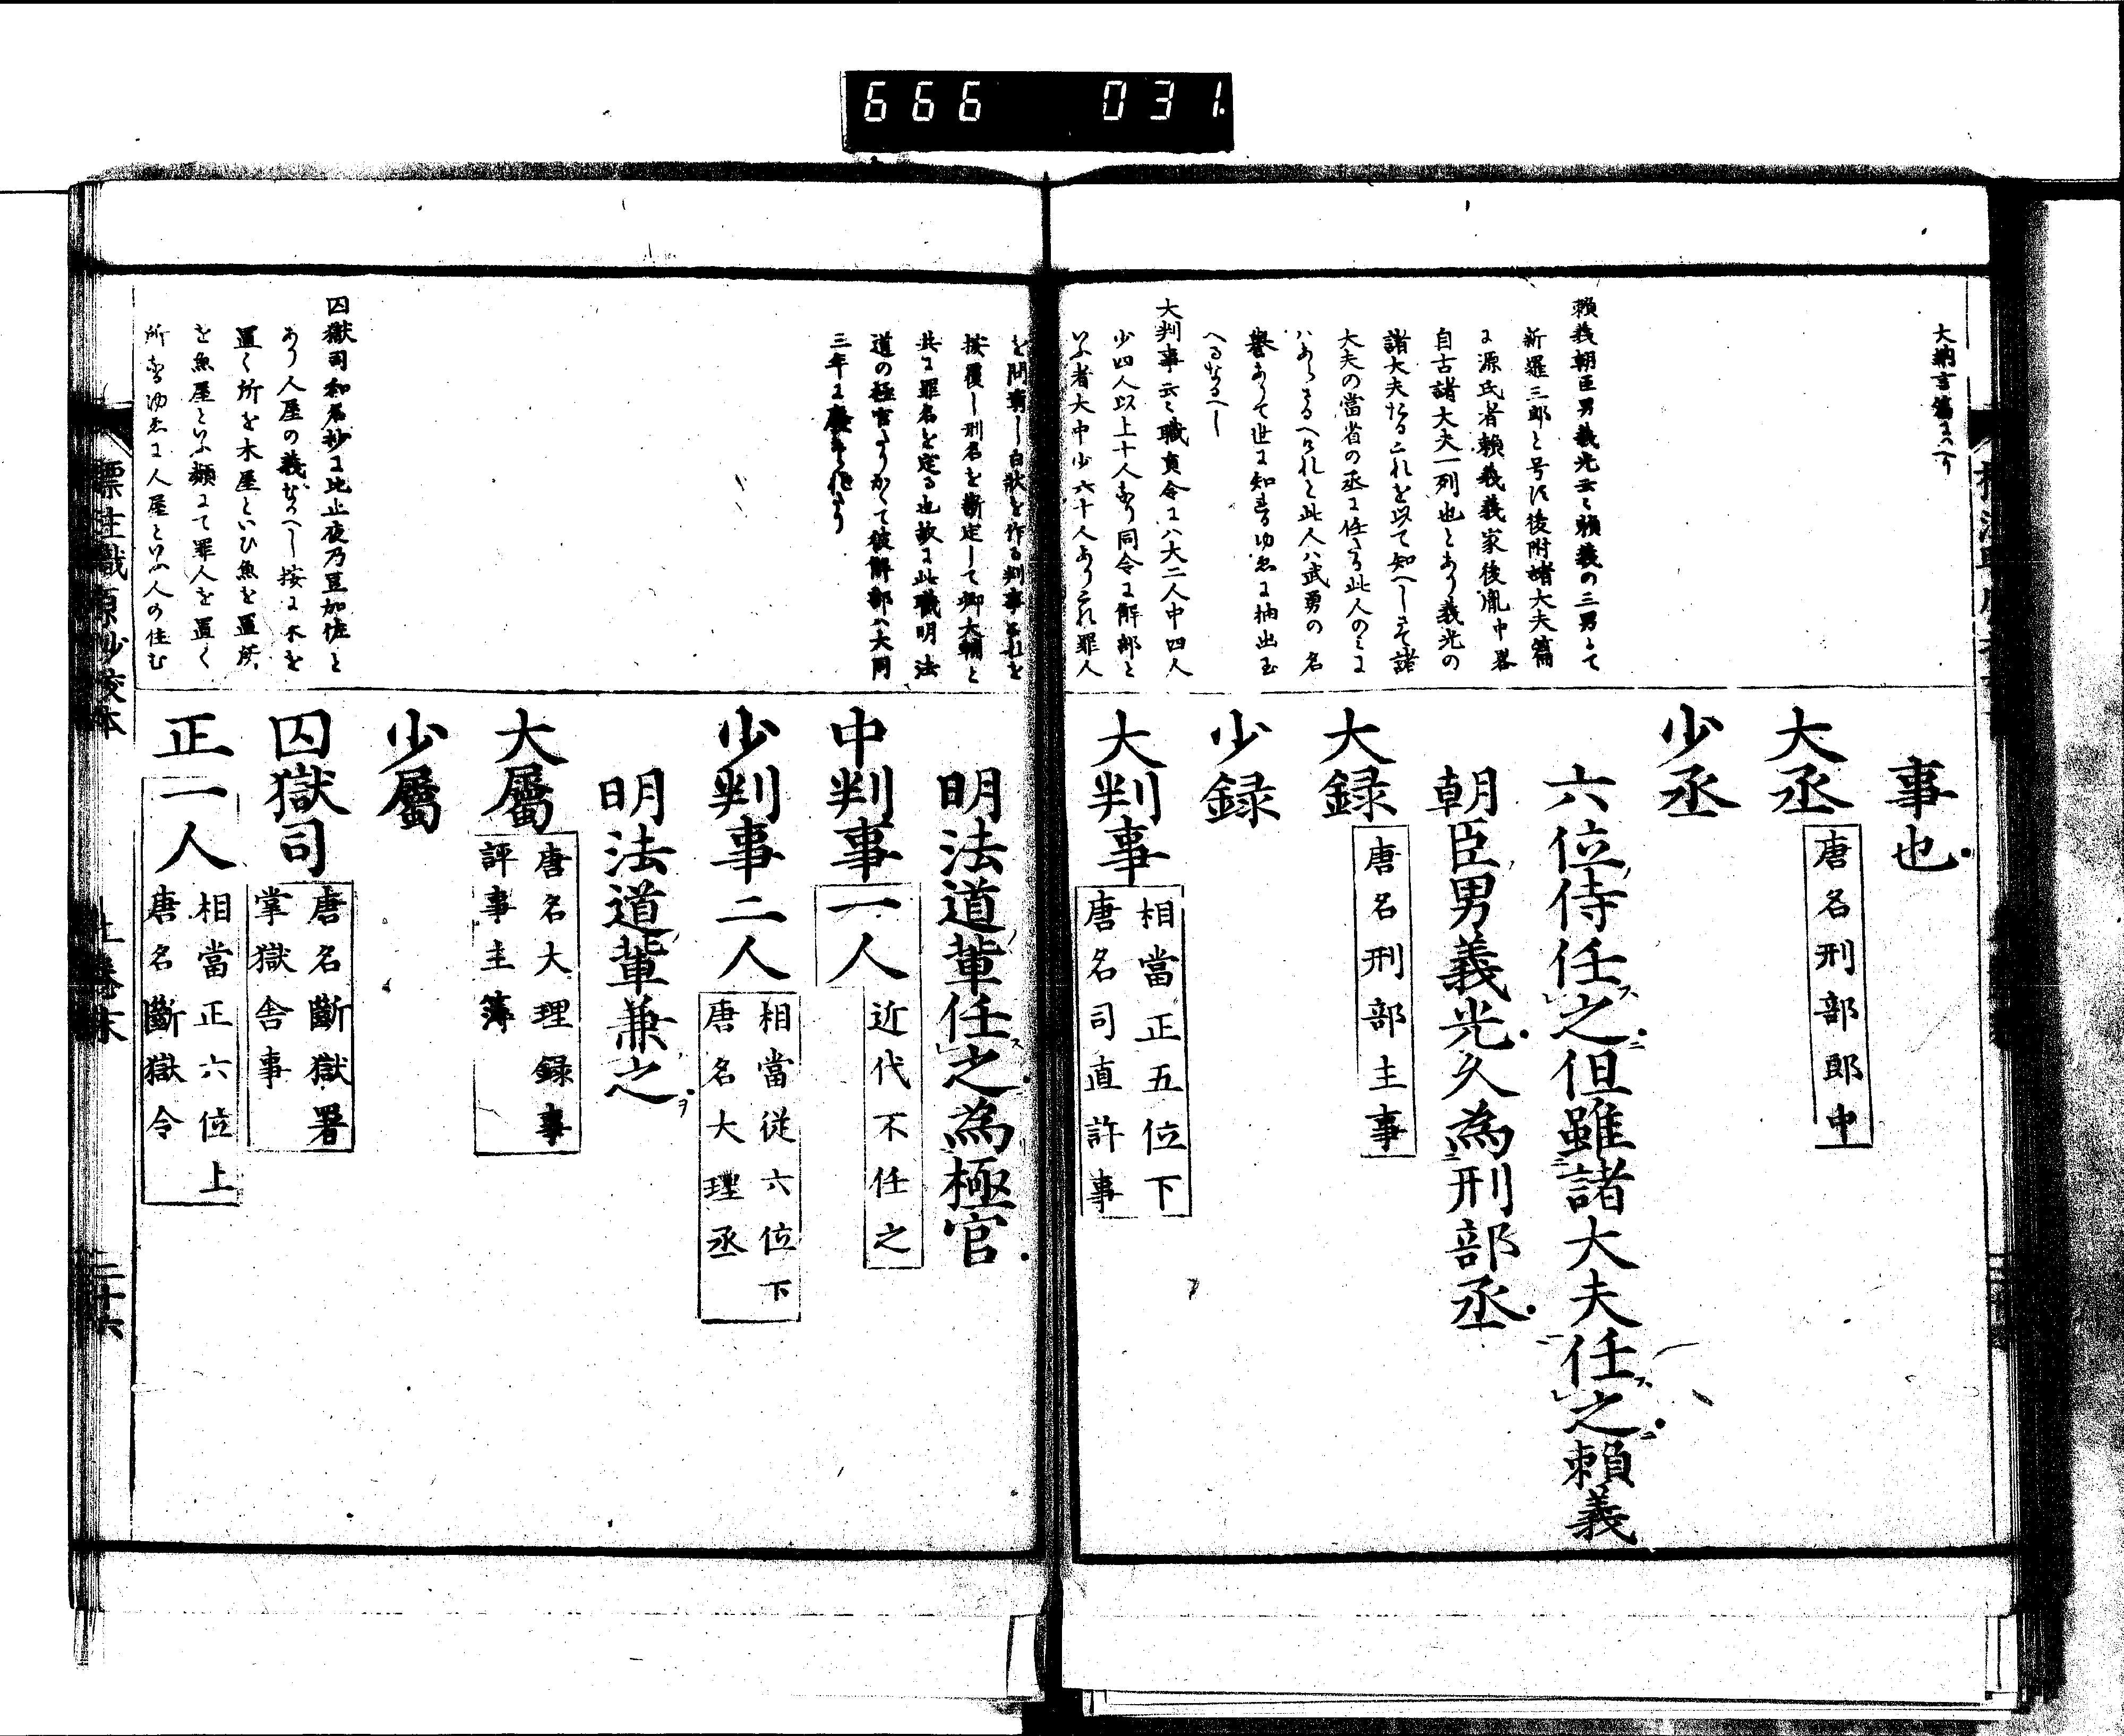 666 031
大納言篇にいへり
賴義朝臣男義光云々賴義の三男にて
新羅三郎と号す後附諸大夫篇
に源氏者賴義義家後胤中畧
自古諸大夫一列也とあり義光の
諸大夫たるこれを以て知へしさて諸
大夫の當省の丞に任する此人のみに
ハあらさるへけれと此人ハ武勇の名
譽ありて世に知るゆゑに抽出玉
へるなるへし
大判事云々職員令にハ大二人中四人
少四人以上十人あり同令に解部と
いふ者大中少六十人ありこれ罪人
事也
大丞 唐名刑部郎中
少丞
六位侍任之但雖諸大夫任之賴義
朝臣男義光久為刑部丞
大録 唐名刑部主事
少録
大判事 相當正五位下
唐名司直許事
を問窮し白狀を作る判事これを
按覆し刑名を斷定して卿大輔と
共に罪名を定る也故に此職明法
道の極官なりかくて彼解部ハ大同
三年に廢これり
囚獄司和名抄に比止夜乃豆加佐と
あり人屋の義なるへし按に木を
置く所を木屋といひ魚を置所
を魚屋といふ類にて罪人を置く
所なるゆゑに人屋といふ人の住む
明法道輩任之為極官
中判事一人 近代不任之
少判事二人 相當從六位下
唐名大理丞
明法道輩兼之
大屬 唐名大理録事
評事主簿
少屬
囚獄司 唐名斷獄署
掌獄舎事
正一人 相當正六位上
唐名斷獄令
標注職原抄校本 上巻末 二十六